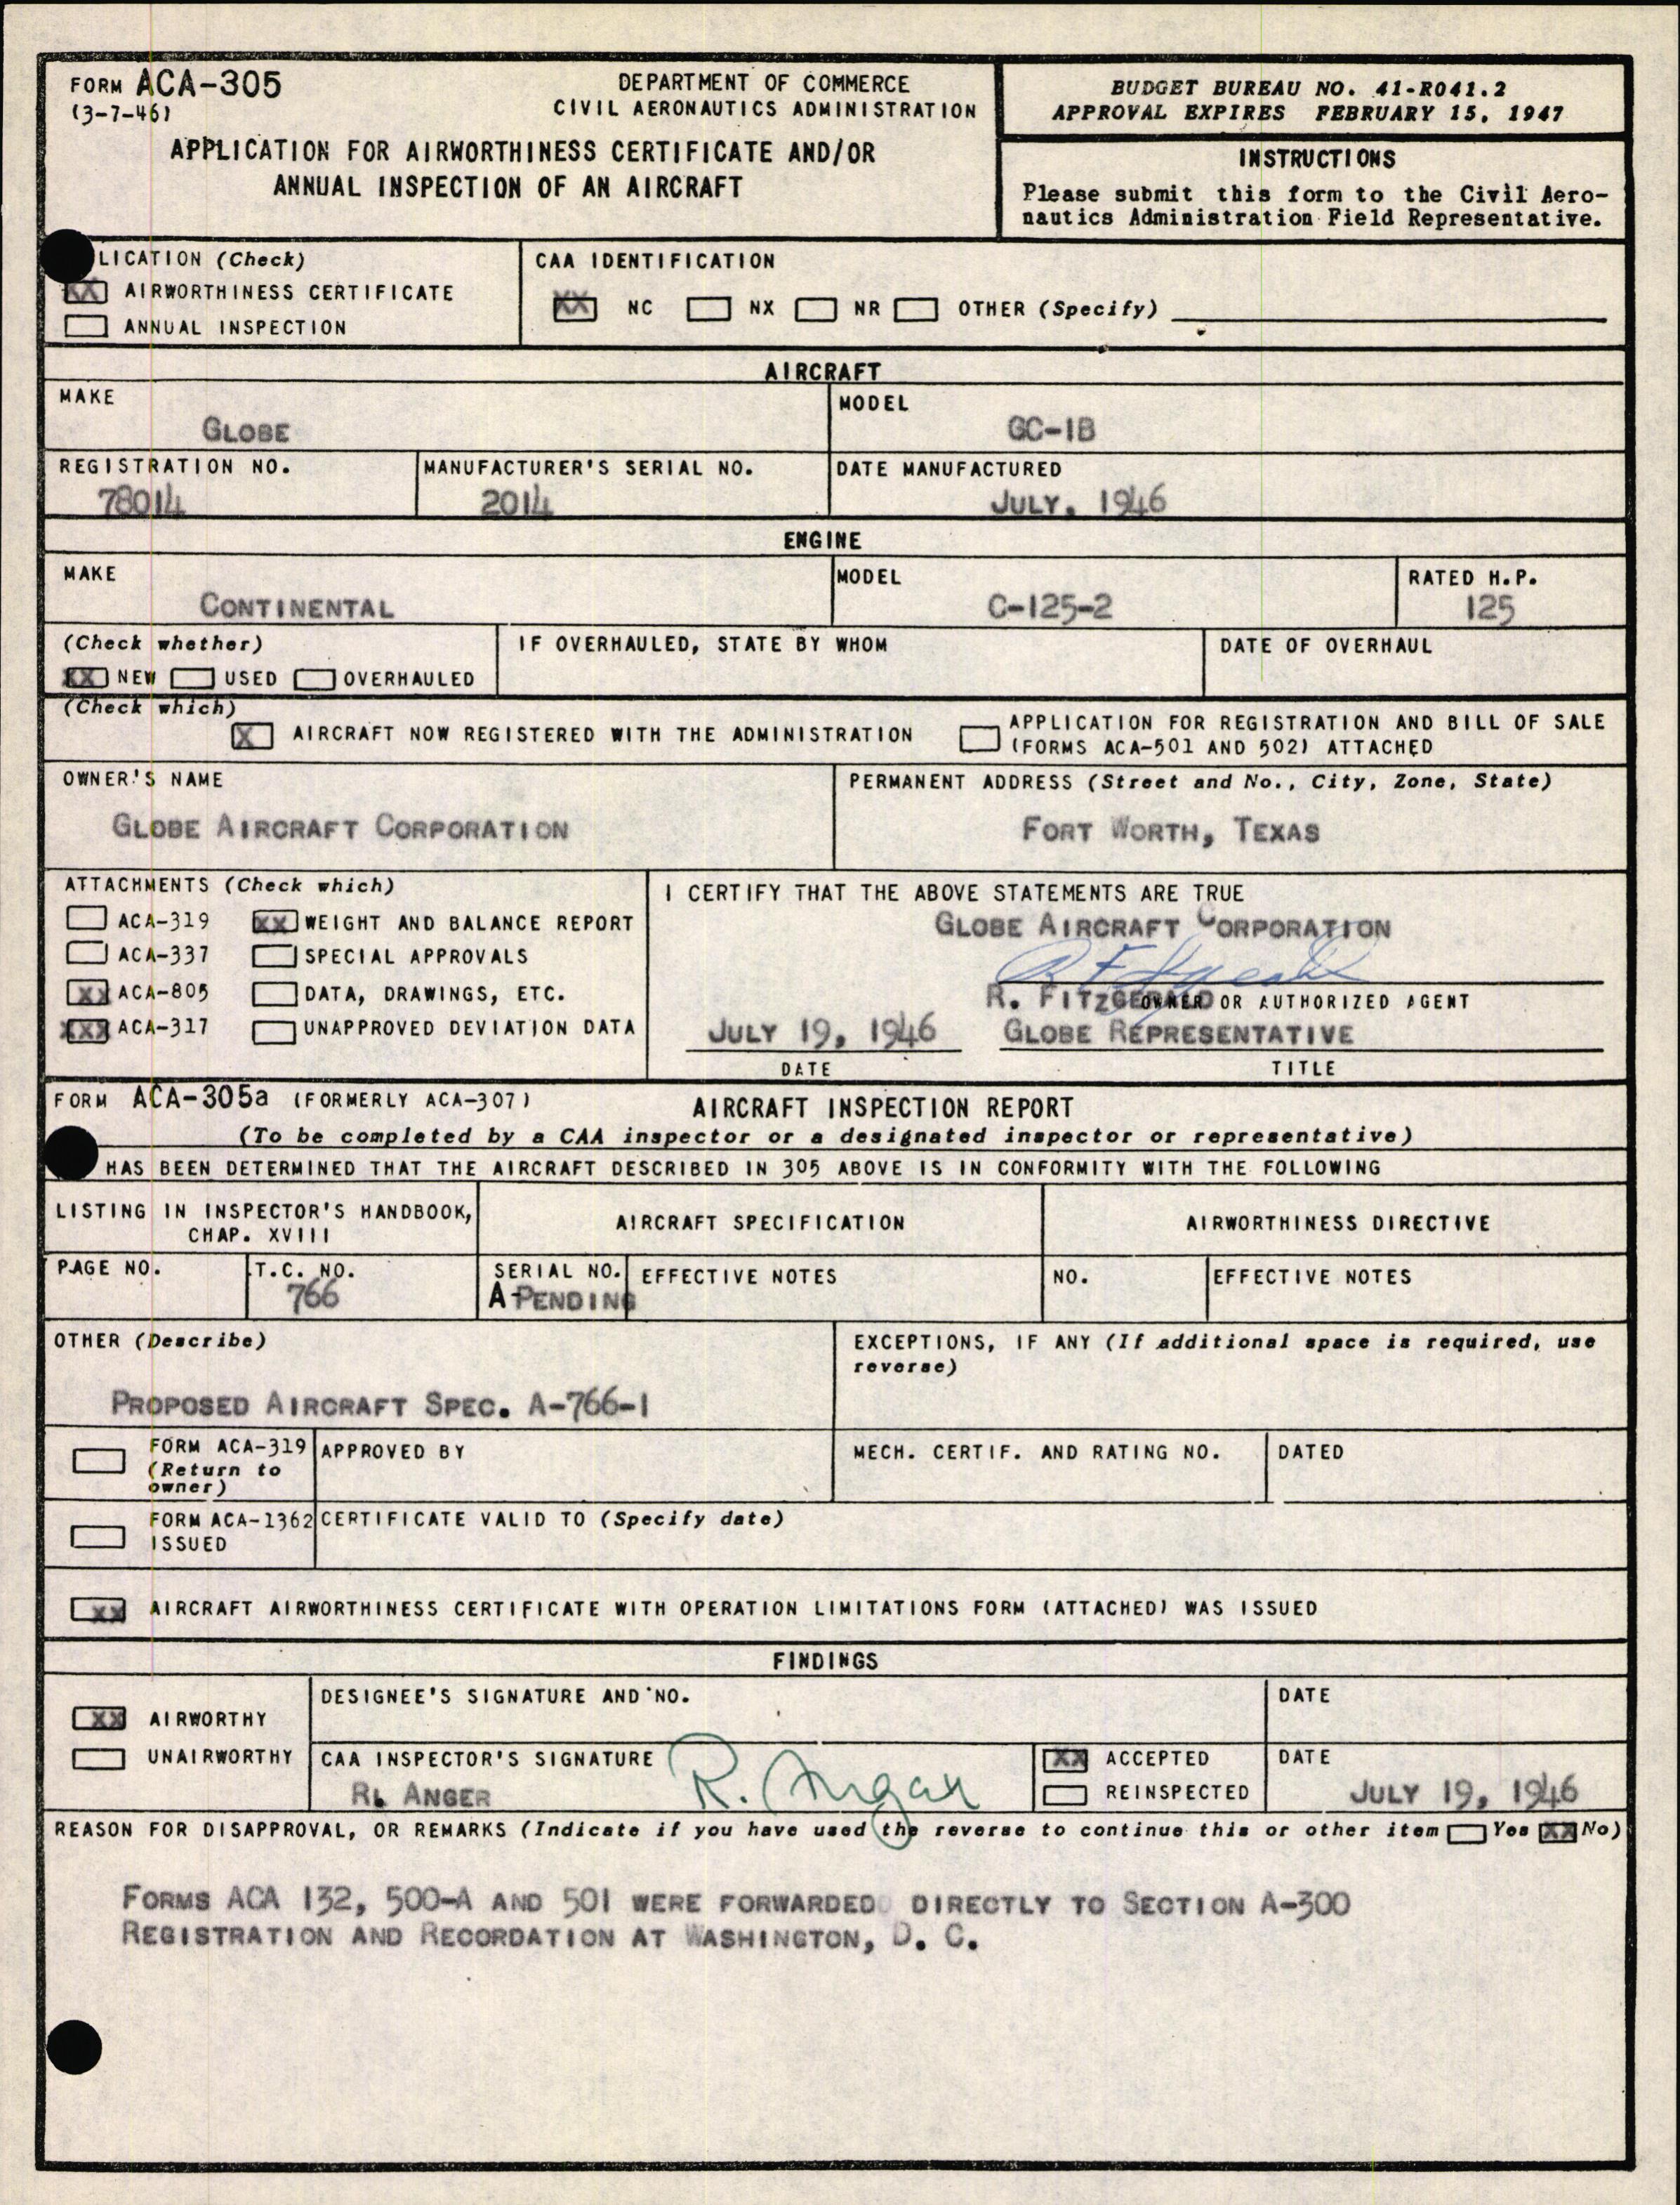 FORM ACA-305
(3-7-46)
DEPARTMENT OF COMMERCE
CIVIL AERONAUTICS ADMINISTRATION
APPLICATION FOR AIRWORTHINESS CERTIFICATE AND/OR
ANNUAL INSPECTION OF AN AIRCRAFT
BUDGET BUREAU NO. 41-R041.2
APPROVAL EXPIRES FEBRUARY 15, 1947
INSTRUCTIONS
Please submit this form to the Civil Aero-
nautics Administration Field Representative.
LICATION (Check)
XX AIRWORTHINESS CERTIFICATE
ANNUAL INSPECTION
CAA IDENTIFICATION
XX NC NX NR OTHER (Specify)
AIRCRAFT
MAKE
GLOBE
MODEL
GC-1B
REGISTRATION NO.
78014
MANUFACTURER'S SERIAL NO.
2014
DATE MANUFACTURED
JULY, 1946
ENGINE
MAKE
CONTINENTAL
MODEL
C-125-2
RATED H.P.
125
(Check whether)
XX NEW USED OVERHAULED
IF OVERHAULED, STATE BY WHOM
DATE OF OVERHAUL
(Check which)
X AIRCRAFT NOW REGISTERED WITH THE ADMINISTRATION
APPLICATION FOR REGISTRATION AND BILL OF SALE
(FORMS ACA-501 AND 502) ATTACHED
OWNER'S NAME
GLOBE AIRCRAFT CORPORATION
PERMANENT ADDRESS (Street and No., City, Zone, State)
FORT WORTH, TEXAS
ATTACHMENTS (Check which)
ACA-319 XX WEIGHT AND BALANCE REPORT
ACA-337 SPECIAL APPROVALS
XX ACA-805 DATA, DRAWINGS, ETC.
XXX ACA-317 UNAPPROVED DEVIATION DATA
I CERTIFY THAT THE ABOVE STATEMENTS ARE TRUE
GLOBE AIRCRAFT CORPORATION
R. FITZGERALD OWNER OR AUTHORIZED AGENT
JULY 19, 1946 GLOBE REPRESENTATIVE
DATE TITLE
FORM ACA-305a (FORMERLY ACA-307)
AIRCRAFT INSPECTION REPORT
(To be completed by a CAA inspector or a designated inspector or representative)
HAS BEEN DETERMINED THAT THE AIRCRAFT DESCRIBED IN 305 ABOVE IS IN CONFORMITY WITH THE FOLLOWING
LISTING IN INSPECTOR'S HANDBOOK,
CHAP. XVIII
AIRCRAFT SPECIFICATION
AIRWORTHINESS DIRECTIVE
PAGE NO.
T.C. NO.
766
SERIAL NO.
A-PENDING
EFFECTIVE NOTES
NO.
EFFECTIVE NOTES
OTHER (Describe)
PROPOSED AIRCRAFT SPEC. A-766-1
EXCEPTIONS, IF ANY (If additional space is required, use
reverse)
FORM ACA-319
(Return to
owner)
APPROVED BY
MECH. CERTIF. AND RATING NO.
DATED
FORM ACA-1362
ISSUED
CERTIFICATE VALID TO (Specify date)
XX AIRCRAFT AIRWORTHINESS CERTIFICATE WITH OPERATION LIMITATIONS FORM (ATTACHED) WAS ISSUED
FINDINGS
XX AIRWORTHY
UNAIRWORTHY
DESIGNEE'S SIGNATURE AND NO.
DATE
CAA INSPECTOR'S SIGNATURE
R. ANGER
R. Anger
XX ACCEPTED
REINSPECTED
DATE
JULY 19, 1946
REASON FOR DISAPPROVAL, OR REMARKS (Indicate if you have used the reverse to continue this or other item Yes XX No)
FORMS ACA 132, 500-A AND 501 WERE FORWARDED DIRECTLY TO SECTION A-300
REGISTRATION AND RECORDATION AT WASHINGTON, D. C.